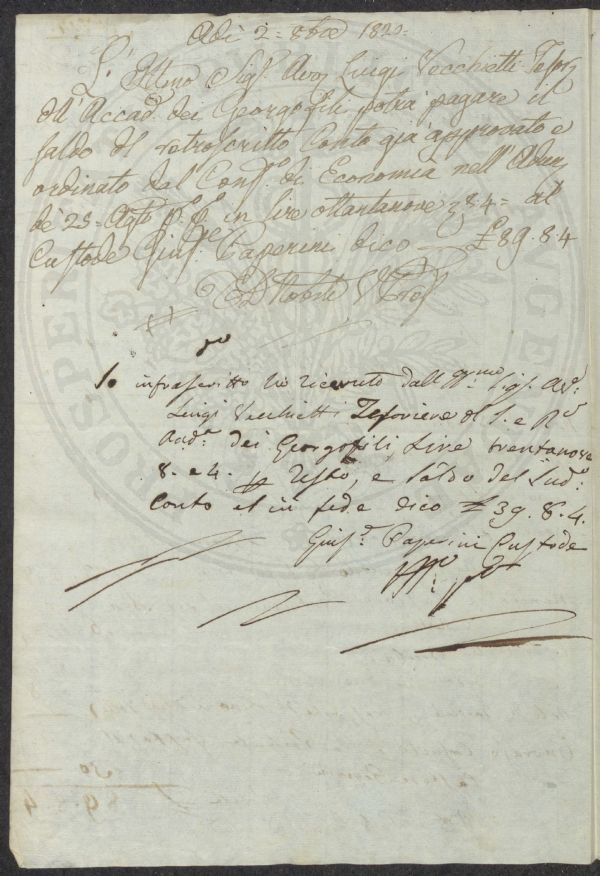 Adì 2 = 8bre 1820 =
L' Illmo Sigr. Avv. Luigi Vecchietti Tesor:
dell'Accad. dei Georgofili potrà pagare il
saldo del retroscritto Conto già approvato e
ordinato dal Cons.o di Economia nell'Adun.
de 25 Agto p.p. in lire ottantanove 8 4 = al
Custode Gius.e Paperini dico — £ 89.8.4
Io infrascritto ho ricevuto dall Illmo Sigr. Av.
Luigi Vecchietti Tesoriere d. I. e R.
Acd.a dei Georgofili, Lire trentanove
8. e 4. p Resto, e saldo del Sud.o
Conto et in fede dico £ 39. 8. 4.
Gius.e Paperini Custode